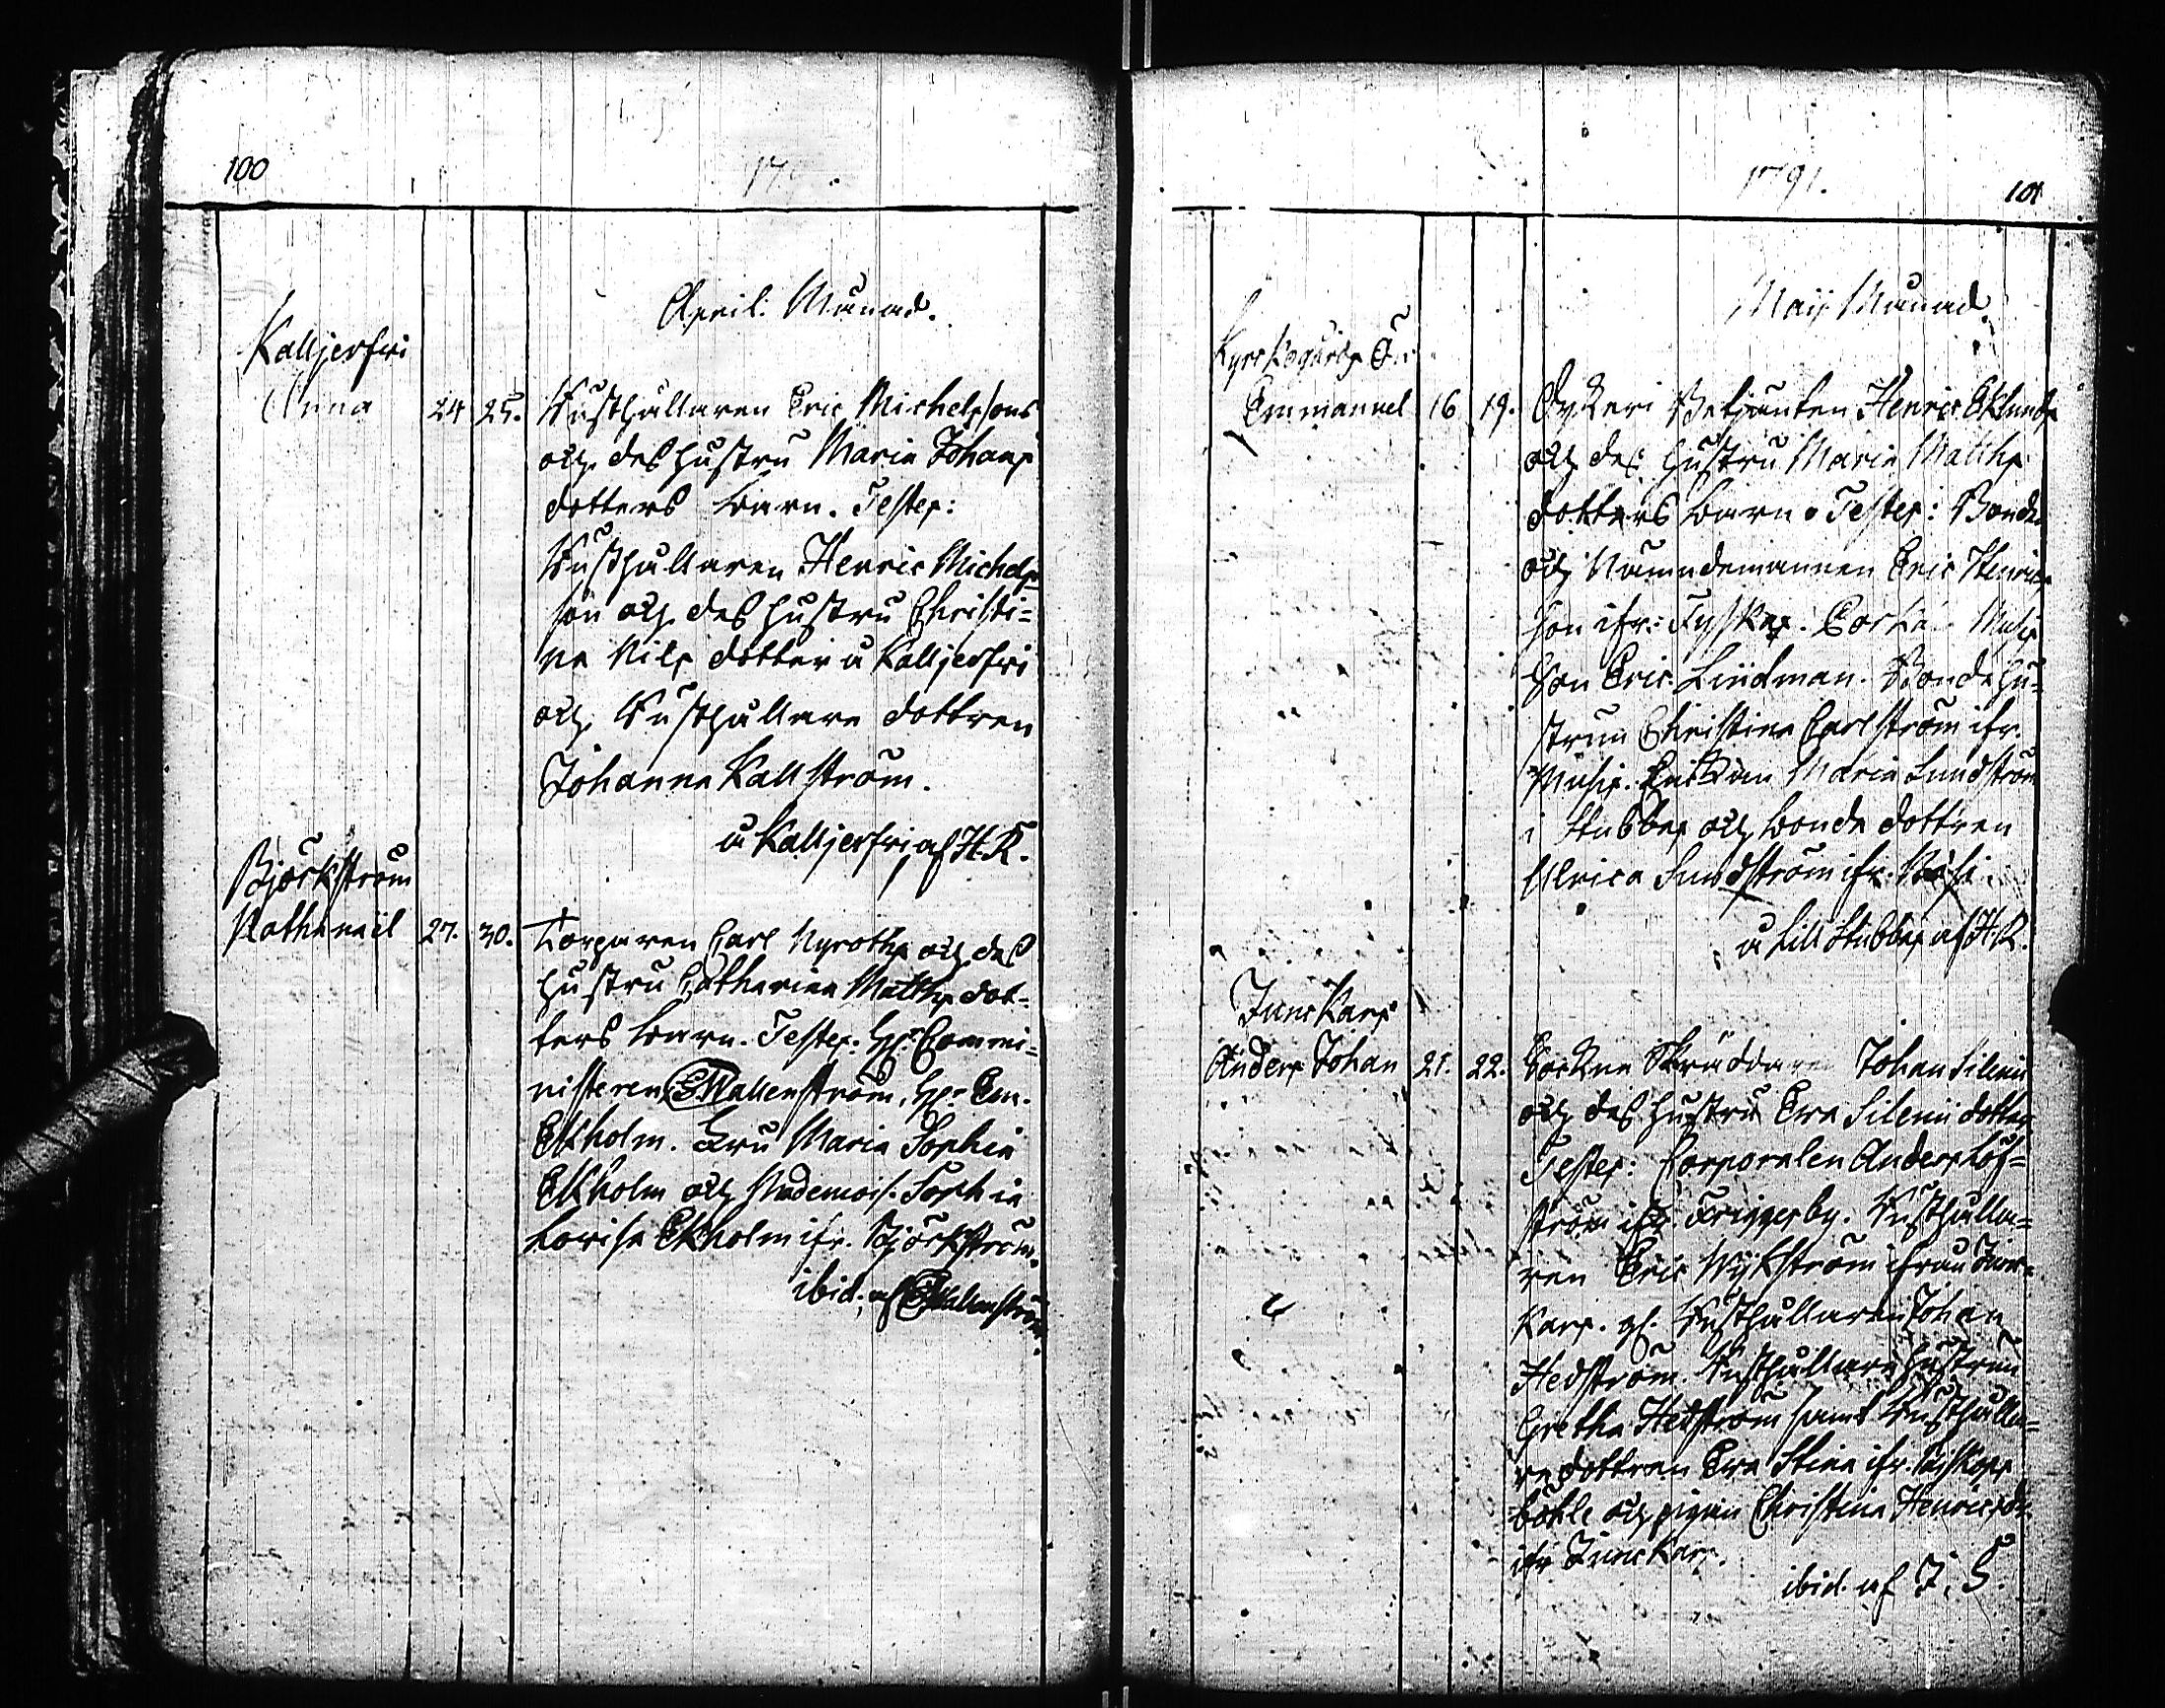 100
17
April. Månad.
Kalljerfvi
Anna 24 25. Rusthållaren Eric Michelssons
och des hustru Maria Johans
dotters barn. Testes:
Rusthållaren Henric Michels
son och des hustru Christi=
na Nils dotter å Kalljerfvi
och Rusthållare dottren
Johanna Kallström.
å Kalljerfvi af H. R.
Björkström
Nathanaël 27. 30. Torparen Carl Nyroths och des
hustru Catharina Matths dot=
ters barn. Testes: Hr Commi=
nisteren Wallenström, Hr Em.
Ekholm. Fru Maria Sophia
Ekholm och Mademois. Sophia
Lovisa Ekholm ifr. Björkström.
ibid. af Wallenström.
1791.
101
Maij Månad.
Emmanuel 16 19. Betjänten Henric Eklunds
och des hustru Maria Matths
dotters barn. Testes: Bonden
och Nämndemannen Eric Henrics
son ifr.
son Eric Lindman. Bonde hu=
strun Christina Carlström ifr.
Maria Lundström
i Stubbas och bonde dottren
Ulrica Sundström ifr. Näse.
å Lill Stubbas af H. R.
Junckars
Anders Johan 21. 22. Sockne Skräddaren Johan Silenii
och des hustru Eva Silenii dotter
Testes: Corporalen Anders Löf=
ström ifr Friggesby. Rusthålla=
ren Eric Wijkström ifrån Junc=
kars. gl. Rusthållaren Johan
Hedström. Rusthållare hustrun
Gretha Hedström samt Rusthålla=
re dottren Eva Stina ifr.
böhle och pigan Christina Henrics dr
ifr Junckars.
ibid. af J. S.